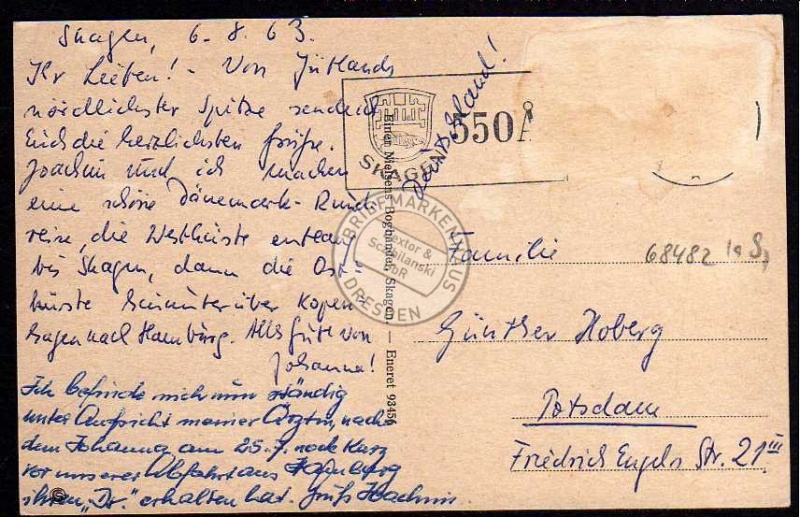 Skagen, 6.8.63.
Ihr Lieben! - Von Jütlands
nördlichster Spitze sendet
Euch die herzlichsten Grüße.
Joachim und ich machen
eine schöne Dänemark-Rund-
reise, die Westküste entlang
bis Skagen, dann die Ost-
küste hinunter über Kopen-
hagen nach Hamburg. Alles Gute von
Johanna!
Ich befinde mich nun ständig
unter Aufsicht meiner Ärztin, nach-
dem Johanna am 25.7. noch kurz
vor unserer Abfahrt aus Hamburg
ihren "Dr." erhalten hat. Gruß Joachim
550Å
SKAGEN
Deutschland!
Einer Nielsens Boghandel, Skagen. — Eneret 93456
BRIEFMARKENHAUS
Textor &
GbR
DRESDEN
Familie
68482
Günther Hoberg
Potsdam
Friedrich Engels Str. 21 III
©